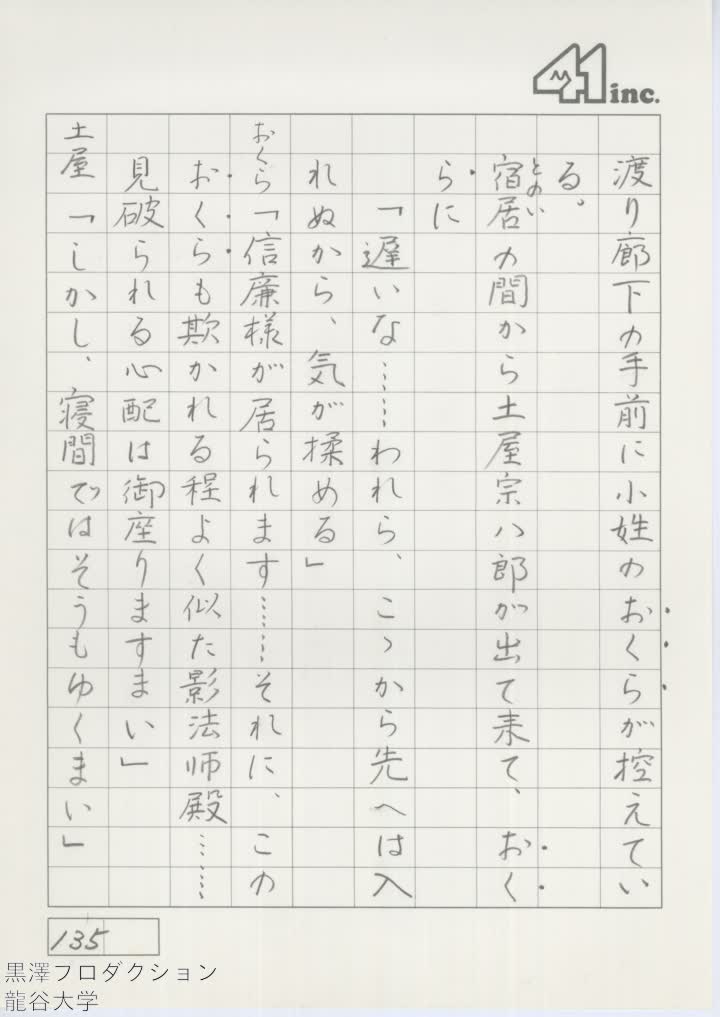 41 inc.
渡り廊下の手前に小姓のおくらが控えてい
る。
宿居の間から土屋宗八郎が出て来て、おく
とのい
らに
「遅いな……われら、こゝから先へは入
れぬから、気が揉める」
おくら「信廉様が居られます……それに、この
おくらも欺かれる程よく似た影法師殿……
見破られる心配は御座りますまい」
土屋「しかし、寝間ではそうもゆくまい」
135
黒澤プロダクション
龍谷大学